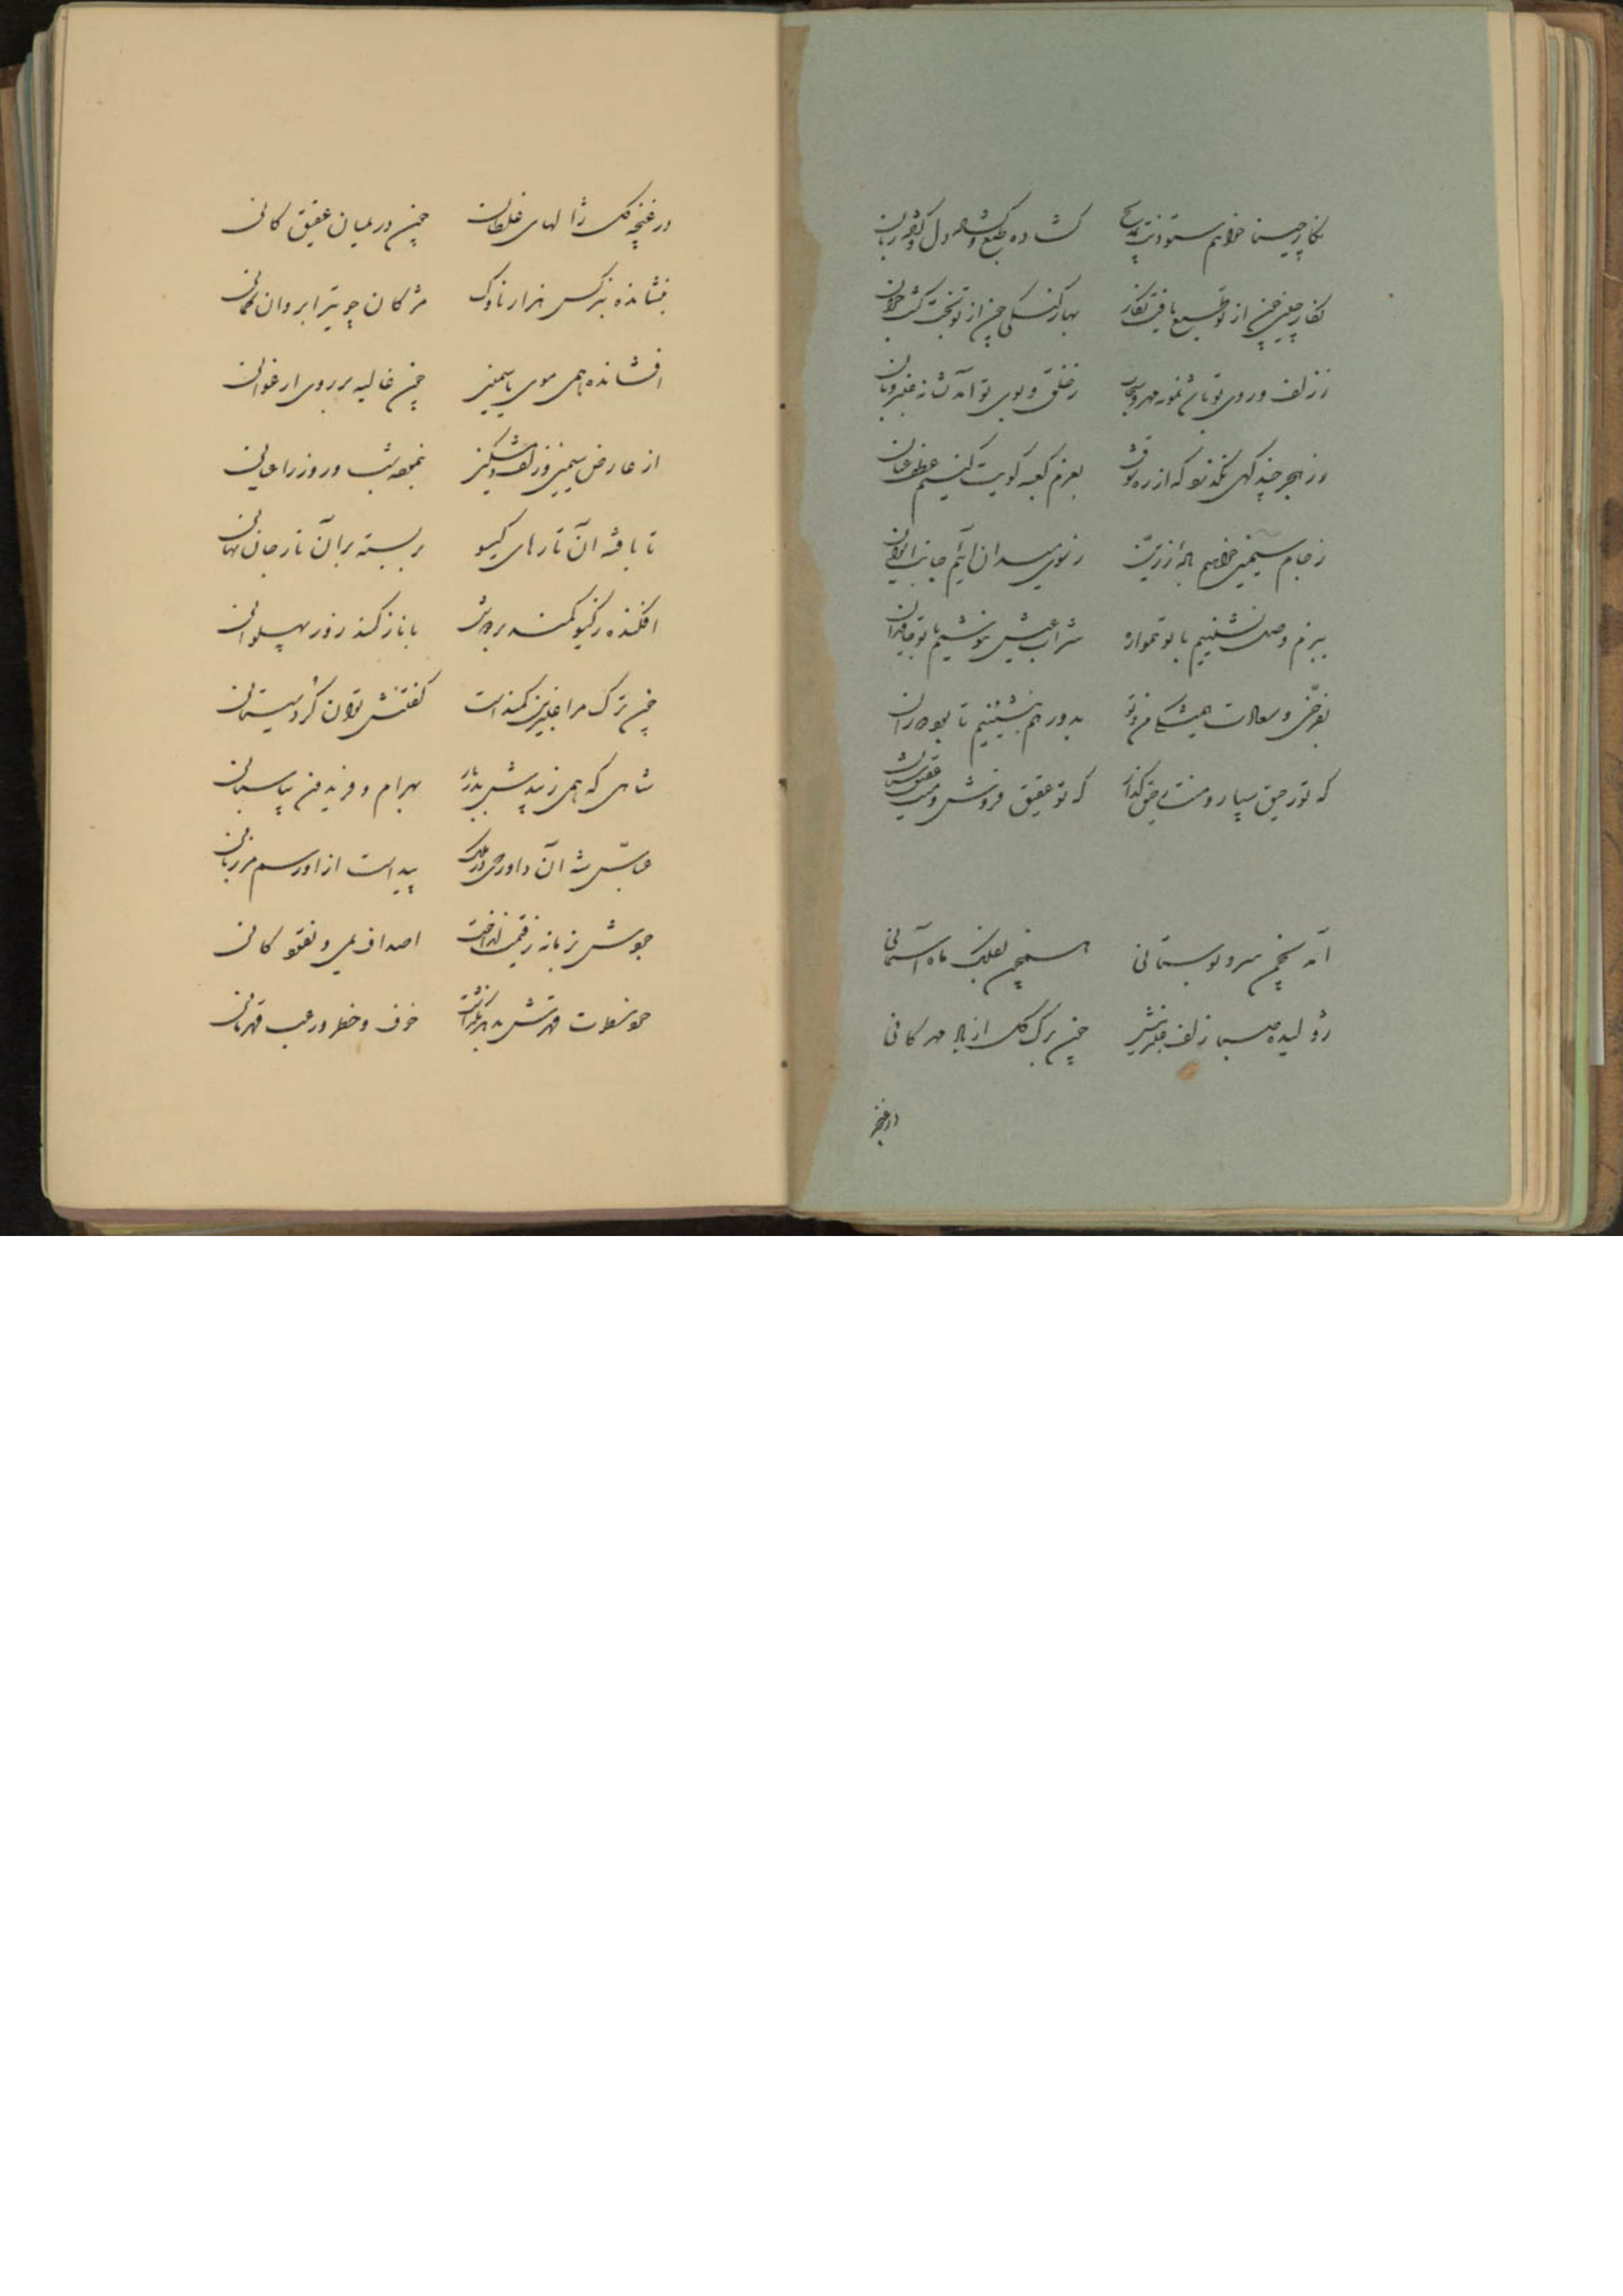 نگار چینا خواهم ستودنت بمدیح کشاده طبع و دل و زبان
نگار چین چمن از تو طبع یافت نگار بهار
ز زلف و روی تو ز خلق و بوی تو آمد نشانه عنبر و بان
وز هجر چند که از ره بعزم کعبه کویت کنیم عطف عنان
ز جام سیمین خواهیم باده زرین ز سوی میدان آئیم جانب ایوان
ببزم وصل نشینیم با تو همواره شراب عیش بنوشیم با تو
بفرخی و سعادت همیشه من و تو بدور هم بنشینیم تا بود دوران
که تو رحیق سپار و منت رحیق گذار که تو عقیق فروش و منت عقیق ستان
آمد بچمن سرو بوستانی بفلک ماه آسمانی
ژولیده صبا زلف عنبرینش چون برگ گل از باد مهرگانی
در غنچه
در غنچه گل ژالهای غلطان چون در بمیان عقیق کانی
بنشانده بنرگس هزار ناوک مژگان چو تیر ابروان کمانی
افشانده همی موی یاسمین چون غالیه بر روی ارغوانی
از عارض سیمین و زلف مشکین شب و روز را
تا بافته آن تارهای گیسو بر بسته بر آن تار جان نهانی
افکنده ز گیسو کمند بر دوش با ناز کند زور پهلوانی
چون ترک مرا عنبرین کمند است گفتنش توان گرد سیستانی
شاهی که همی زیبدش بدربار بهرام و فریدون پاسبانی
عباس شه آن داور پیداست از او رسم مرزبانی
جودش بزمانه اصداف یمی و نقود کانی
چو سطوت قهرش خوف و خطر و رعب قهرمانی